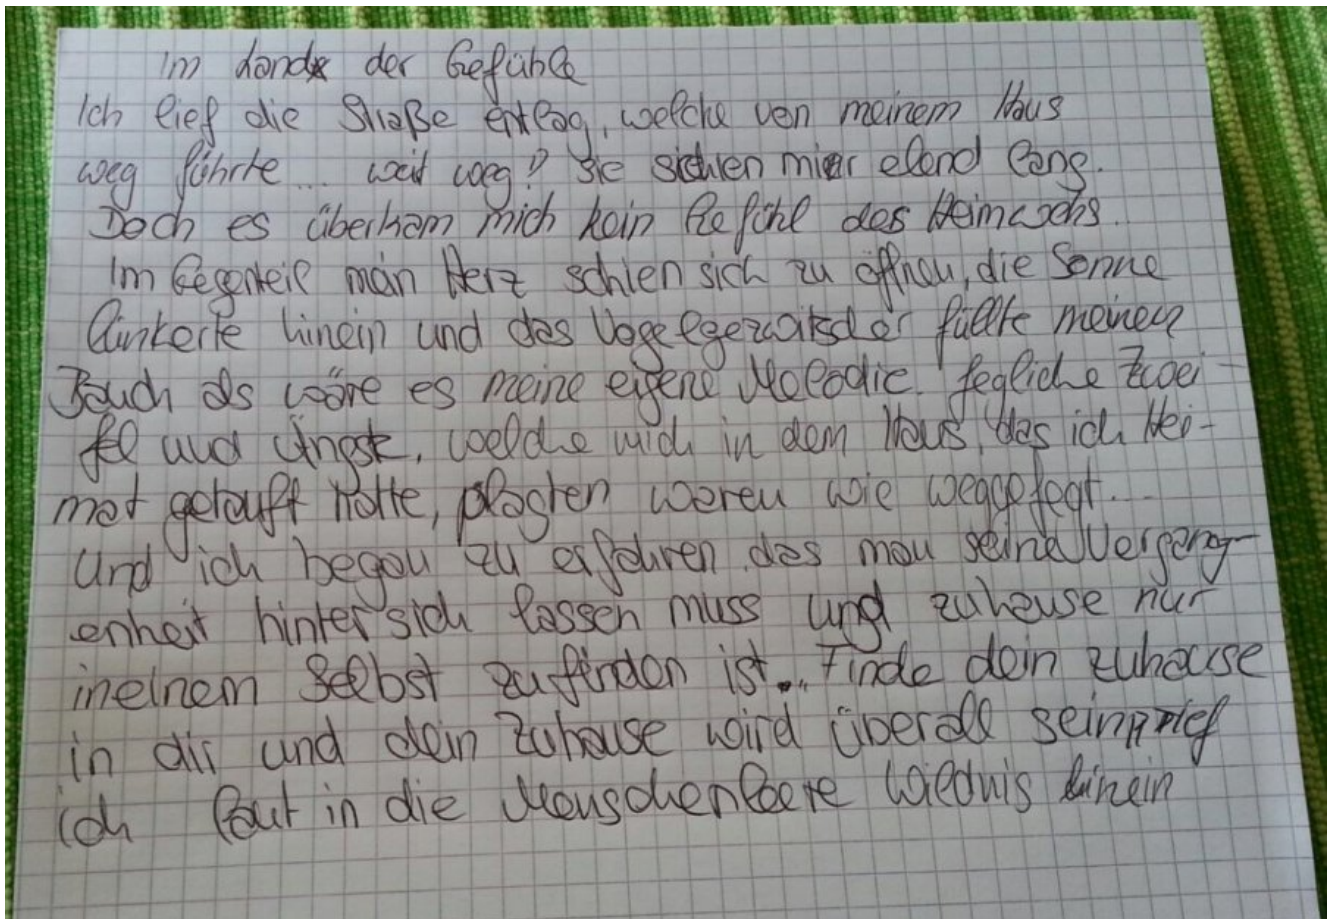 Im Lande der Gefühle
Ich lief die Straße entlag, welche von meinem Haus
weg führte... weit weg! Sie schien mir elend lang.
Doch es überkam mich kein Gefühl des Heimwehs.
Im Gegenteil mein Herz schien sich zu öffnen, die Sonne
hinein und das Vogelgezwitscher füllte meinen
Bauch als wäre es meine eigene Melodie. Jegliche Zwei-
fel und Ängste, welche mich in dem Haus, das ich Hei-
mat getauft hatte, plagten waren wie weggefegt...
Und ich began zu erfahren das man seine Vergang-
enheit hinter sich lassen muss und zuhause nur
in einem Selbst zu finden ist... Finde dein zuhause
in dir und dein Zuhause wird überall sein" rief
ich laut in die Menschenleere Wildnis hinein